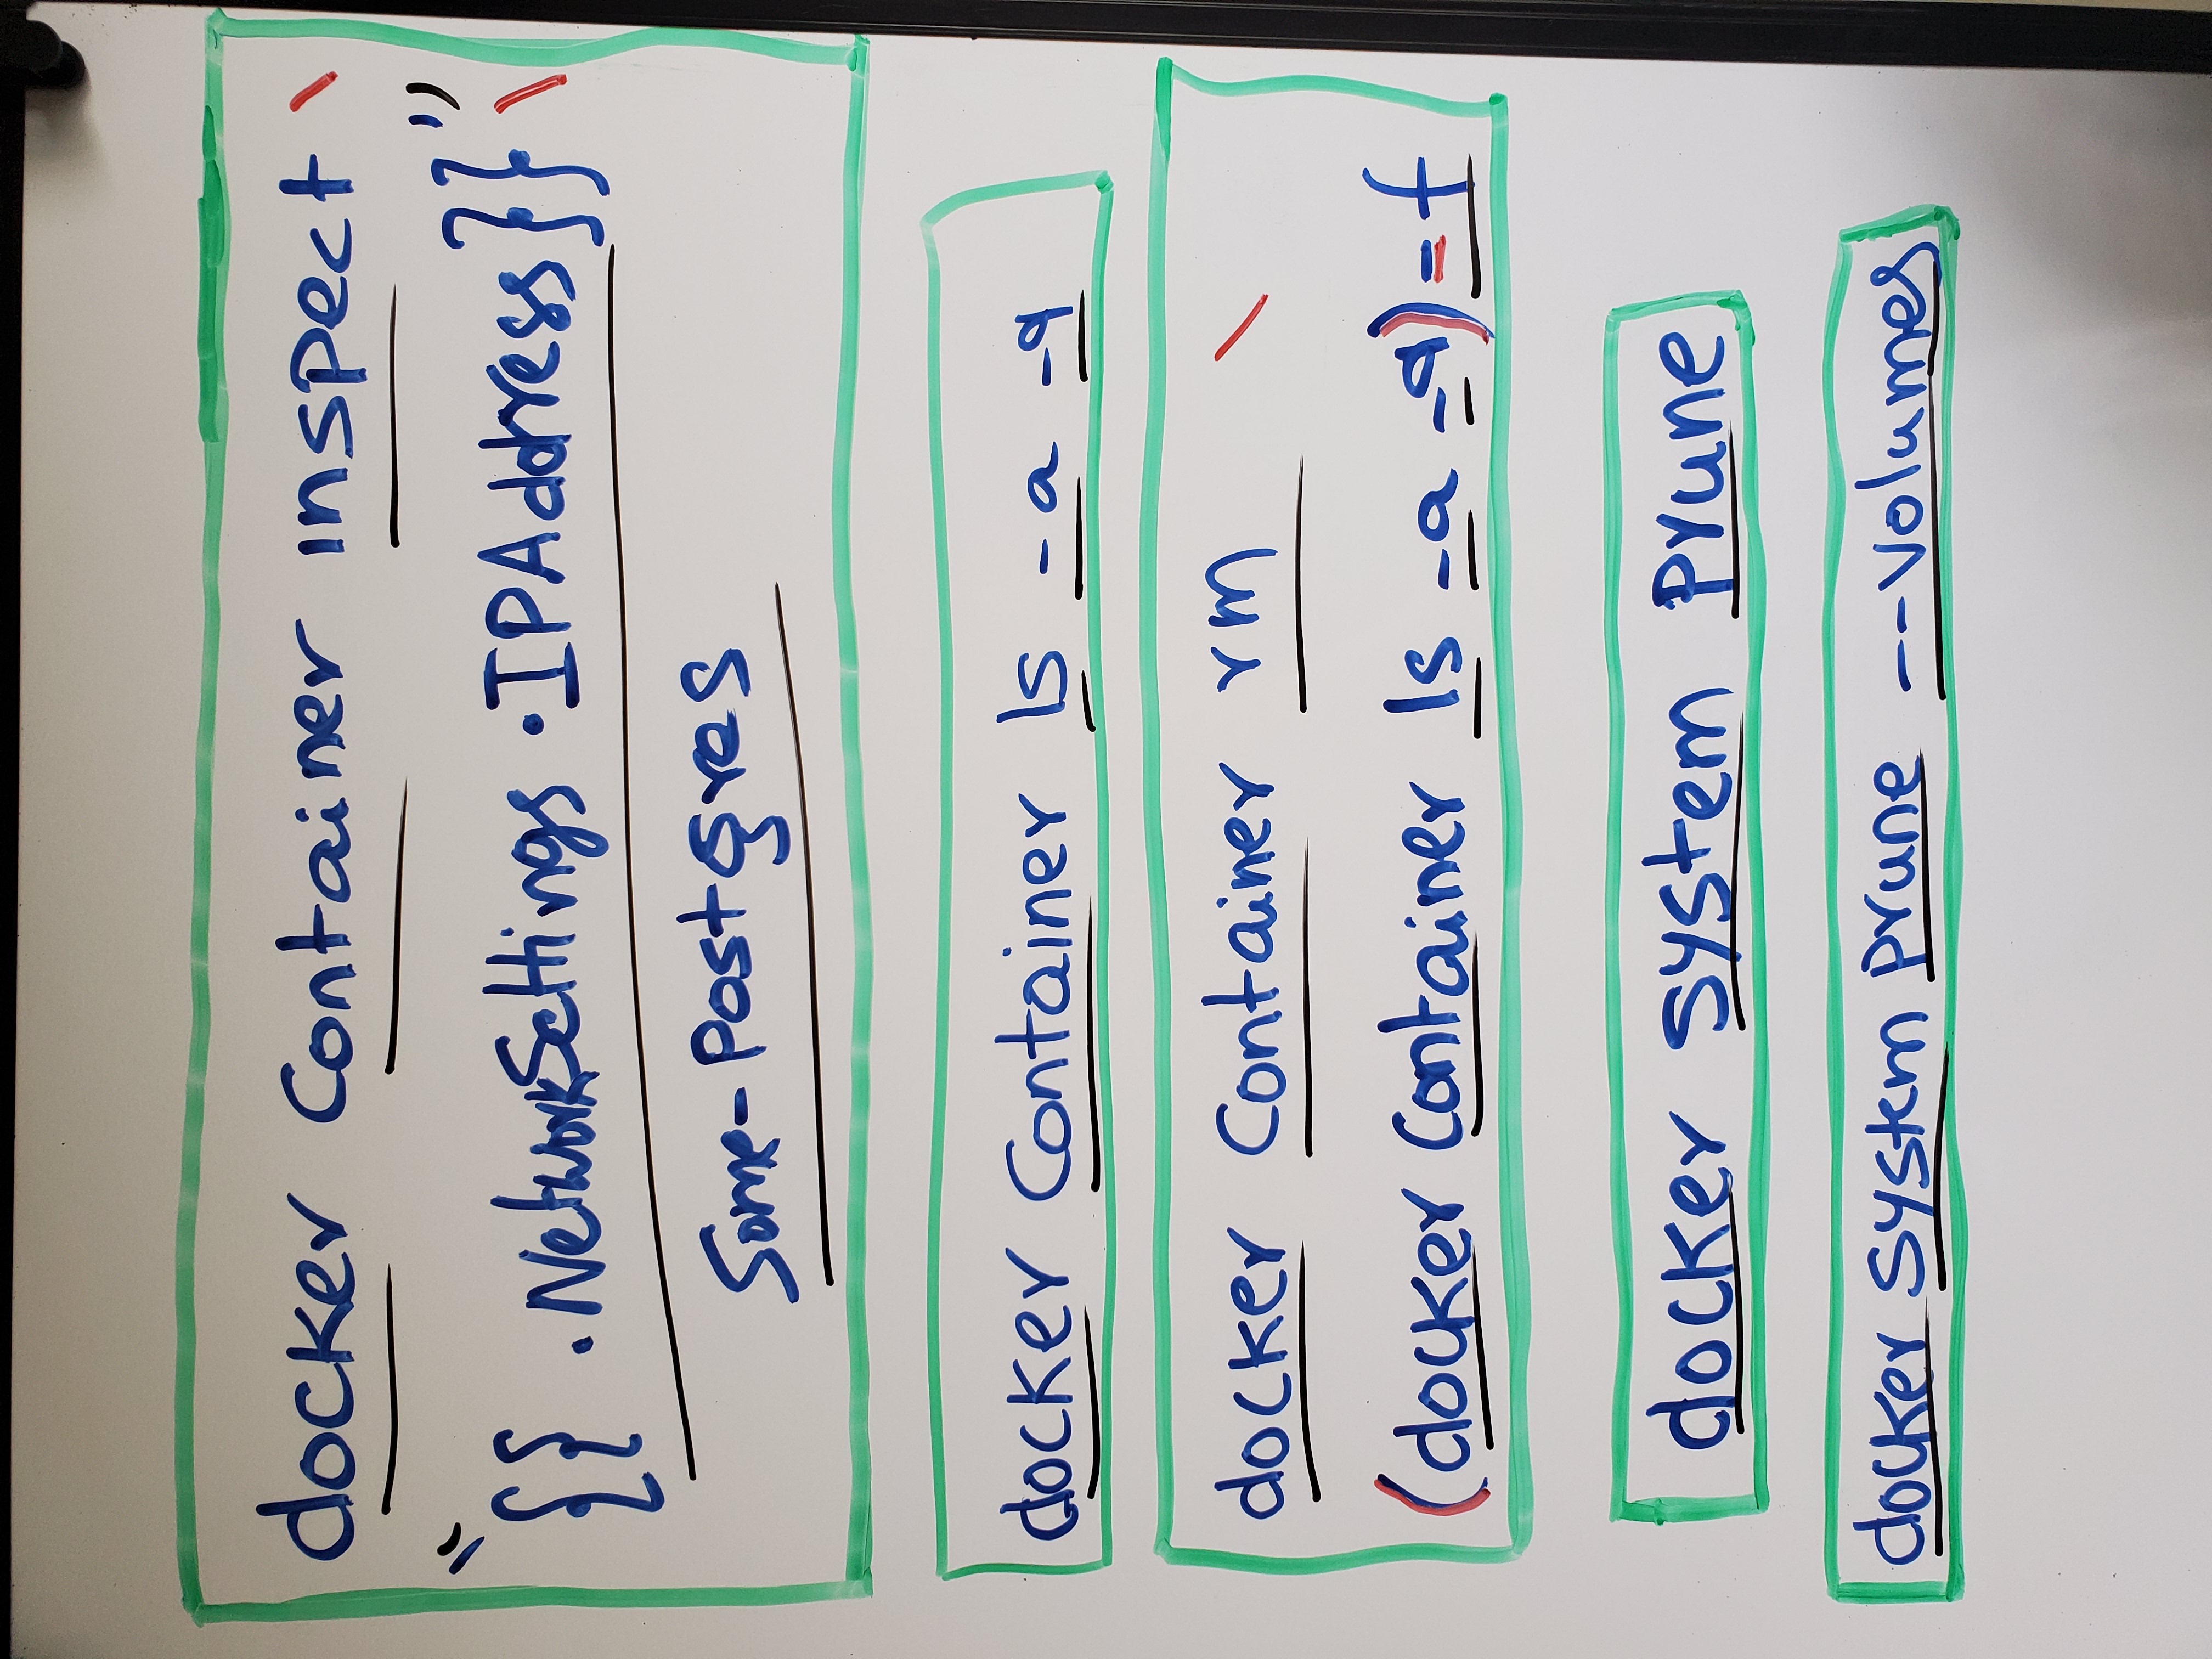 docker Container inspect \
"{{ .NetworkSettings .IPAddress}}" \
Some-Postgres
docker Container ls -a -q
docker Container rm \
(docker Container ls -a -q) -f
docker system prune
docker system prune --volumes